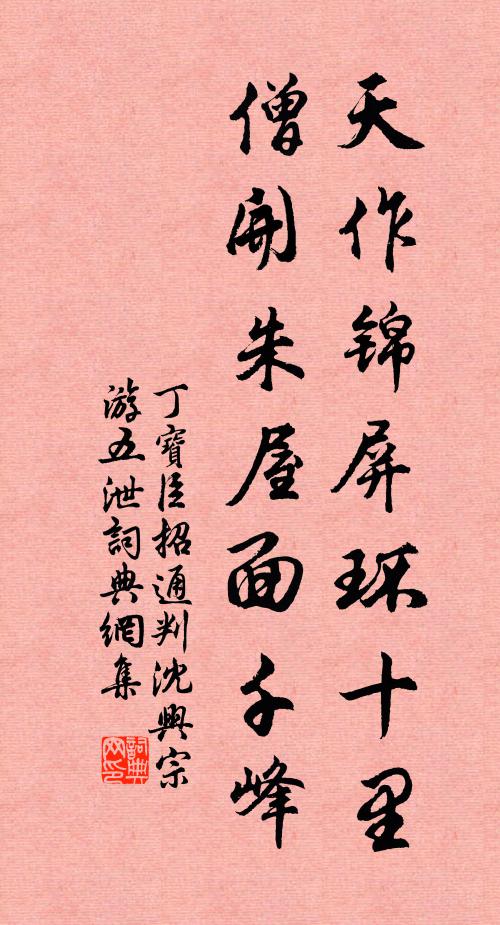 天作锦屏环十里
僧開朱屋面千峰
丁寶臣招通判沈興宗
游五泄詞典網集
詞典网印